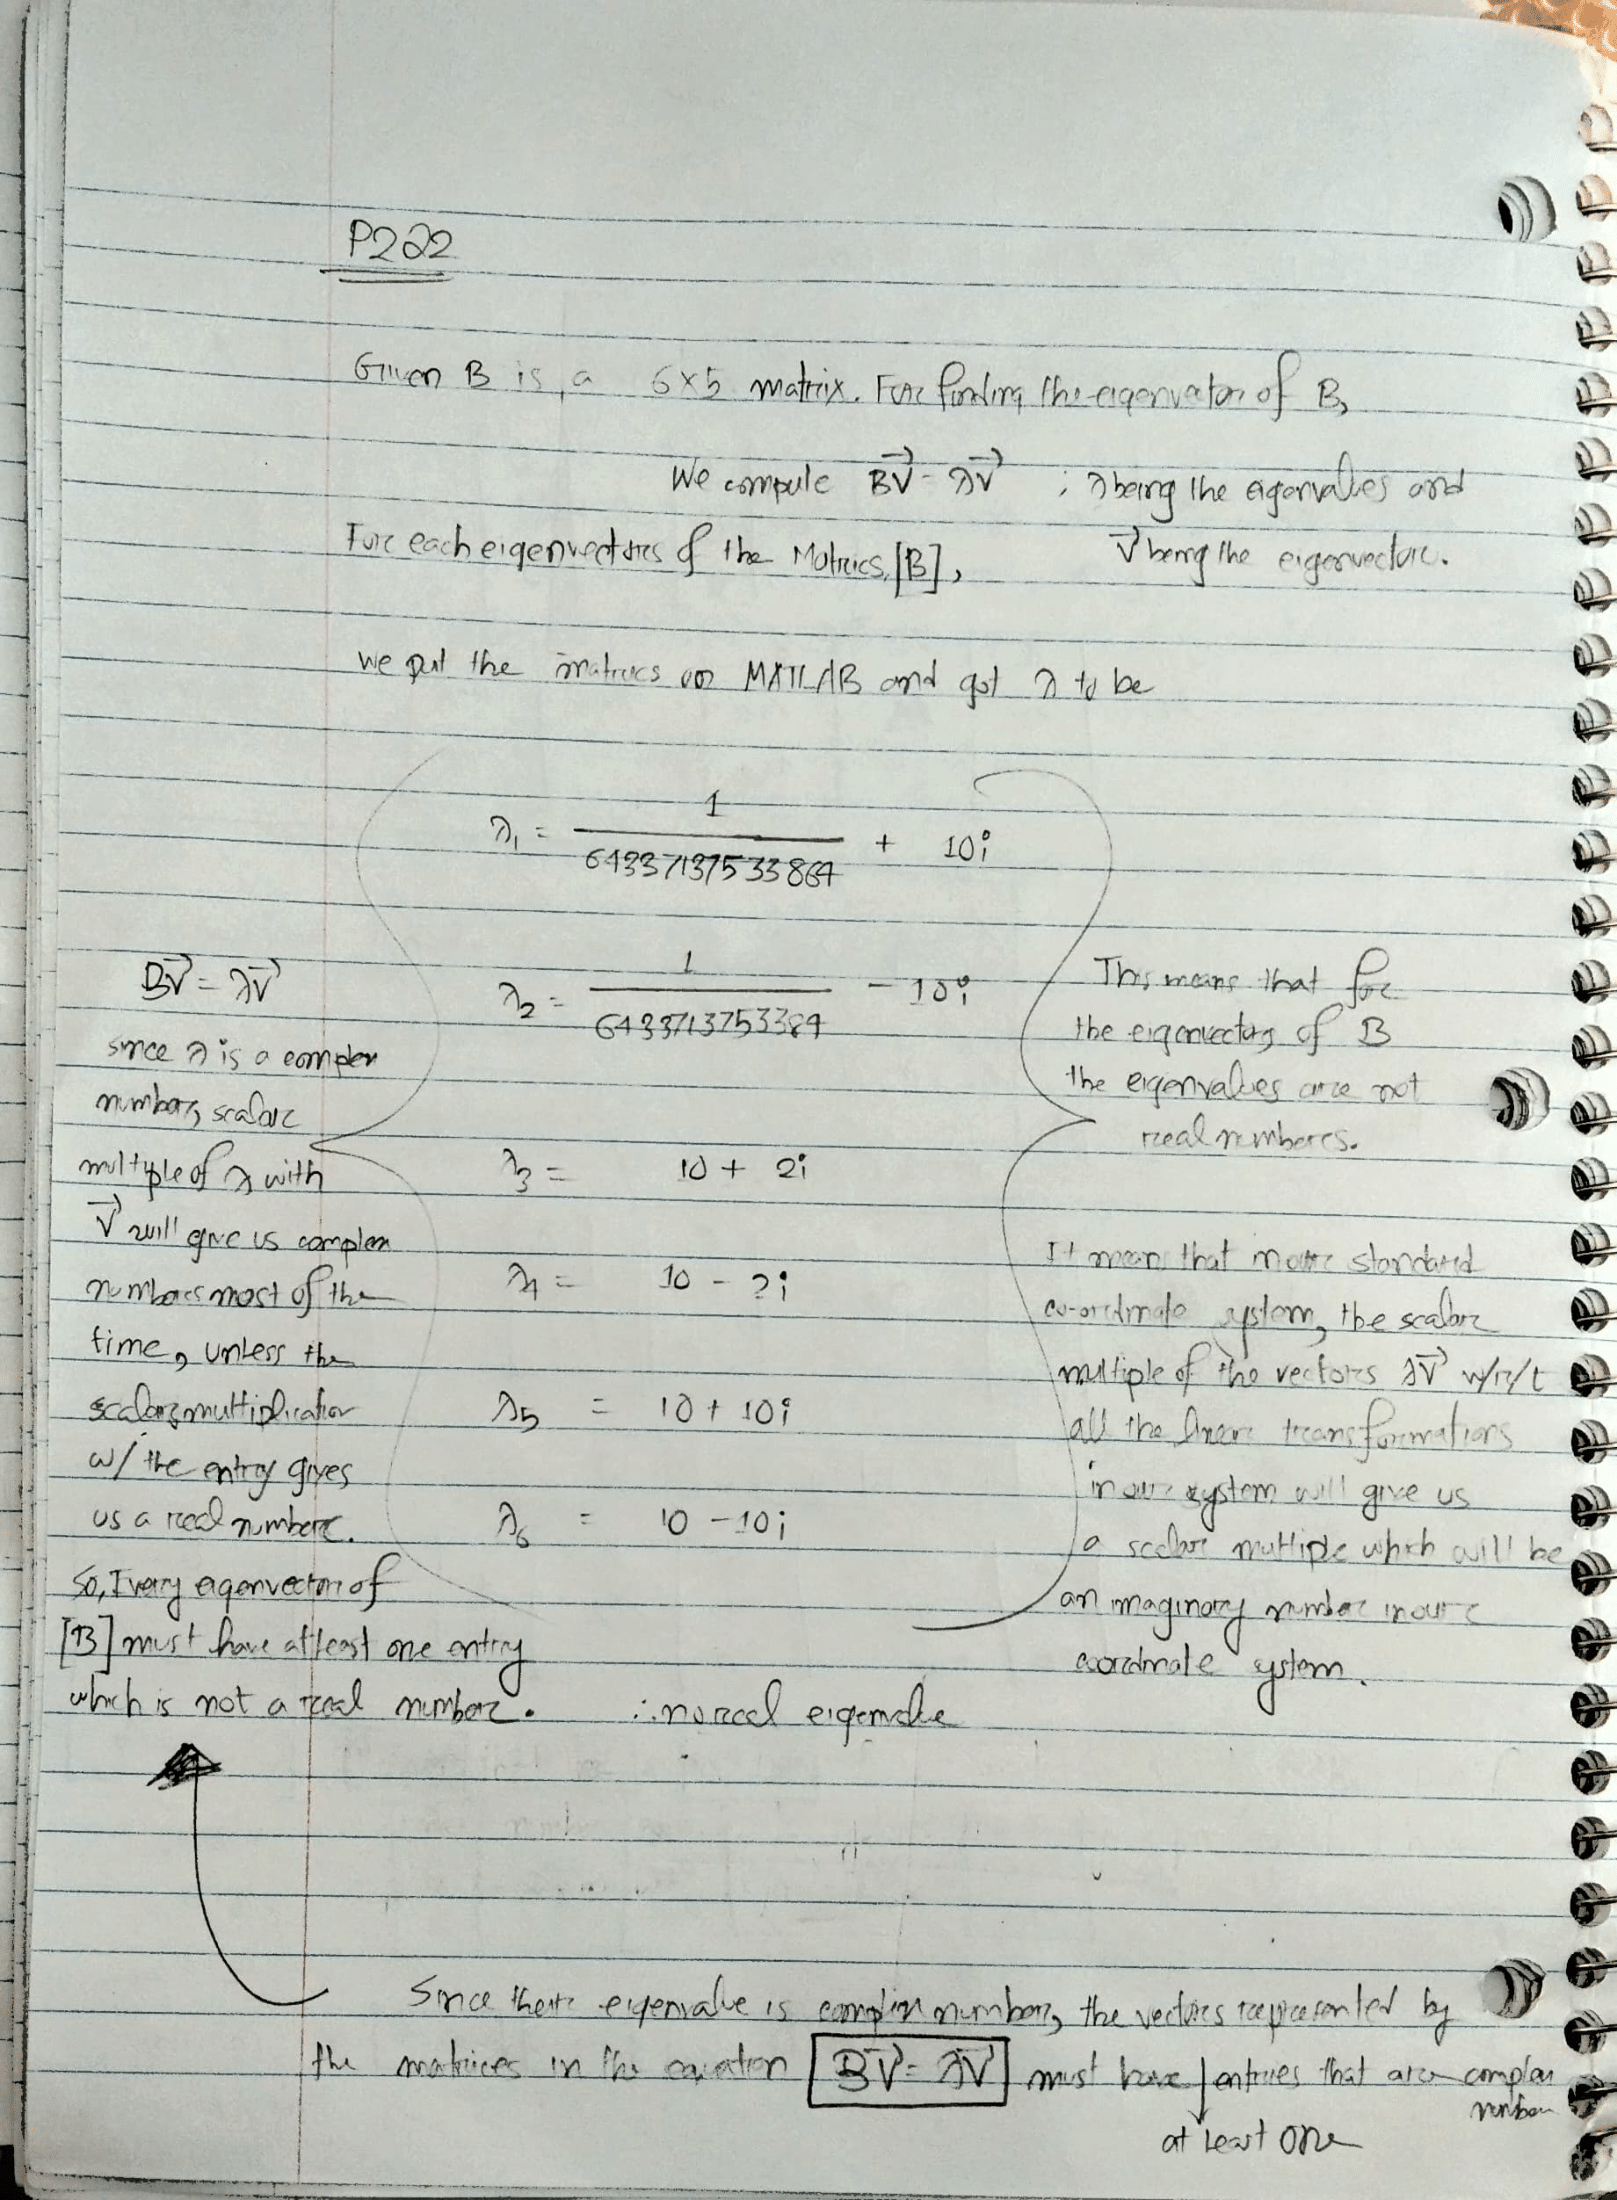 P222
Given B is a 6x5 matrix. For finding the eigenvector of B,
We compute BV⃗ = λV⃗ ; λ being the eigenvalues and
V⃗ being the eigenvector.
For each eigenvectors of the Matrics [B],
we put the matrics on MATLAB and got λ to be
λ₁ = 1 / 64337137533864 + 10i
λ₂ = 1 / 6433713753384 - 10i
λ₃ = 10 + 2i
λ₄ = 10 - 2i
λ₅ = 10 + 10i
λ₆ = 10 - 10i
BV⃗ = λV⃗
since λ is a complex
number, scalar
multiple of λ with
V⃗ will give us complex
numbers most of the
time, unless the
scalar multiplication
w/ the entry gives
us a real number.
So, Every eigenvector of
[B] must have atleast one entry
which is not a real number.
This means that for
the eigenvectors of B
the eigenvalues are not
real numbers.
It means that in our standard
co-ordinate system, the scalar
multiple of the vectors λV⃗ w/r/t
all the linear transformations
in our system will give us
a scalar multiple which will be
an imaginary number in our
coordinate system.
∴ no real eigenvalue
Since their eigenvalue is complex number, the vectors represented by
the matrices in the equation BV⃗ = λV⃗ must have entries that are complex
number
at least one